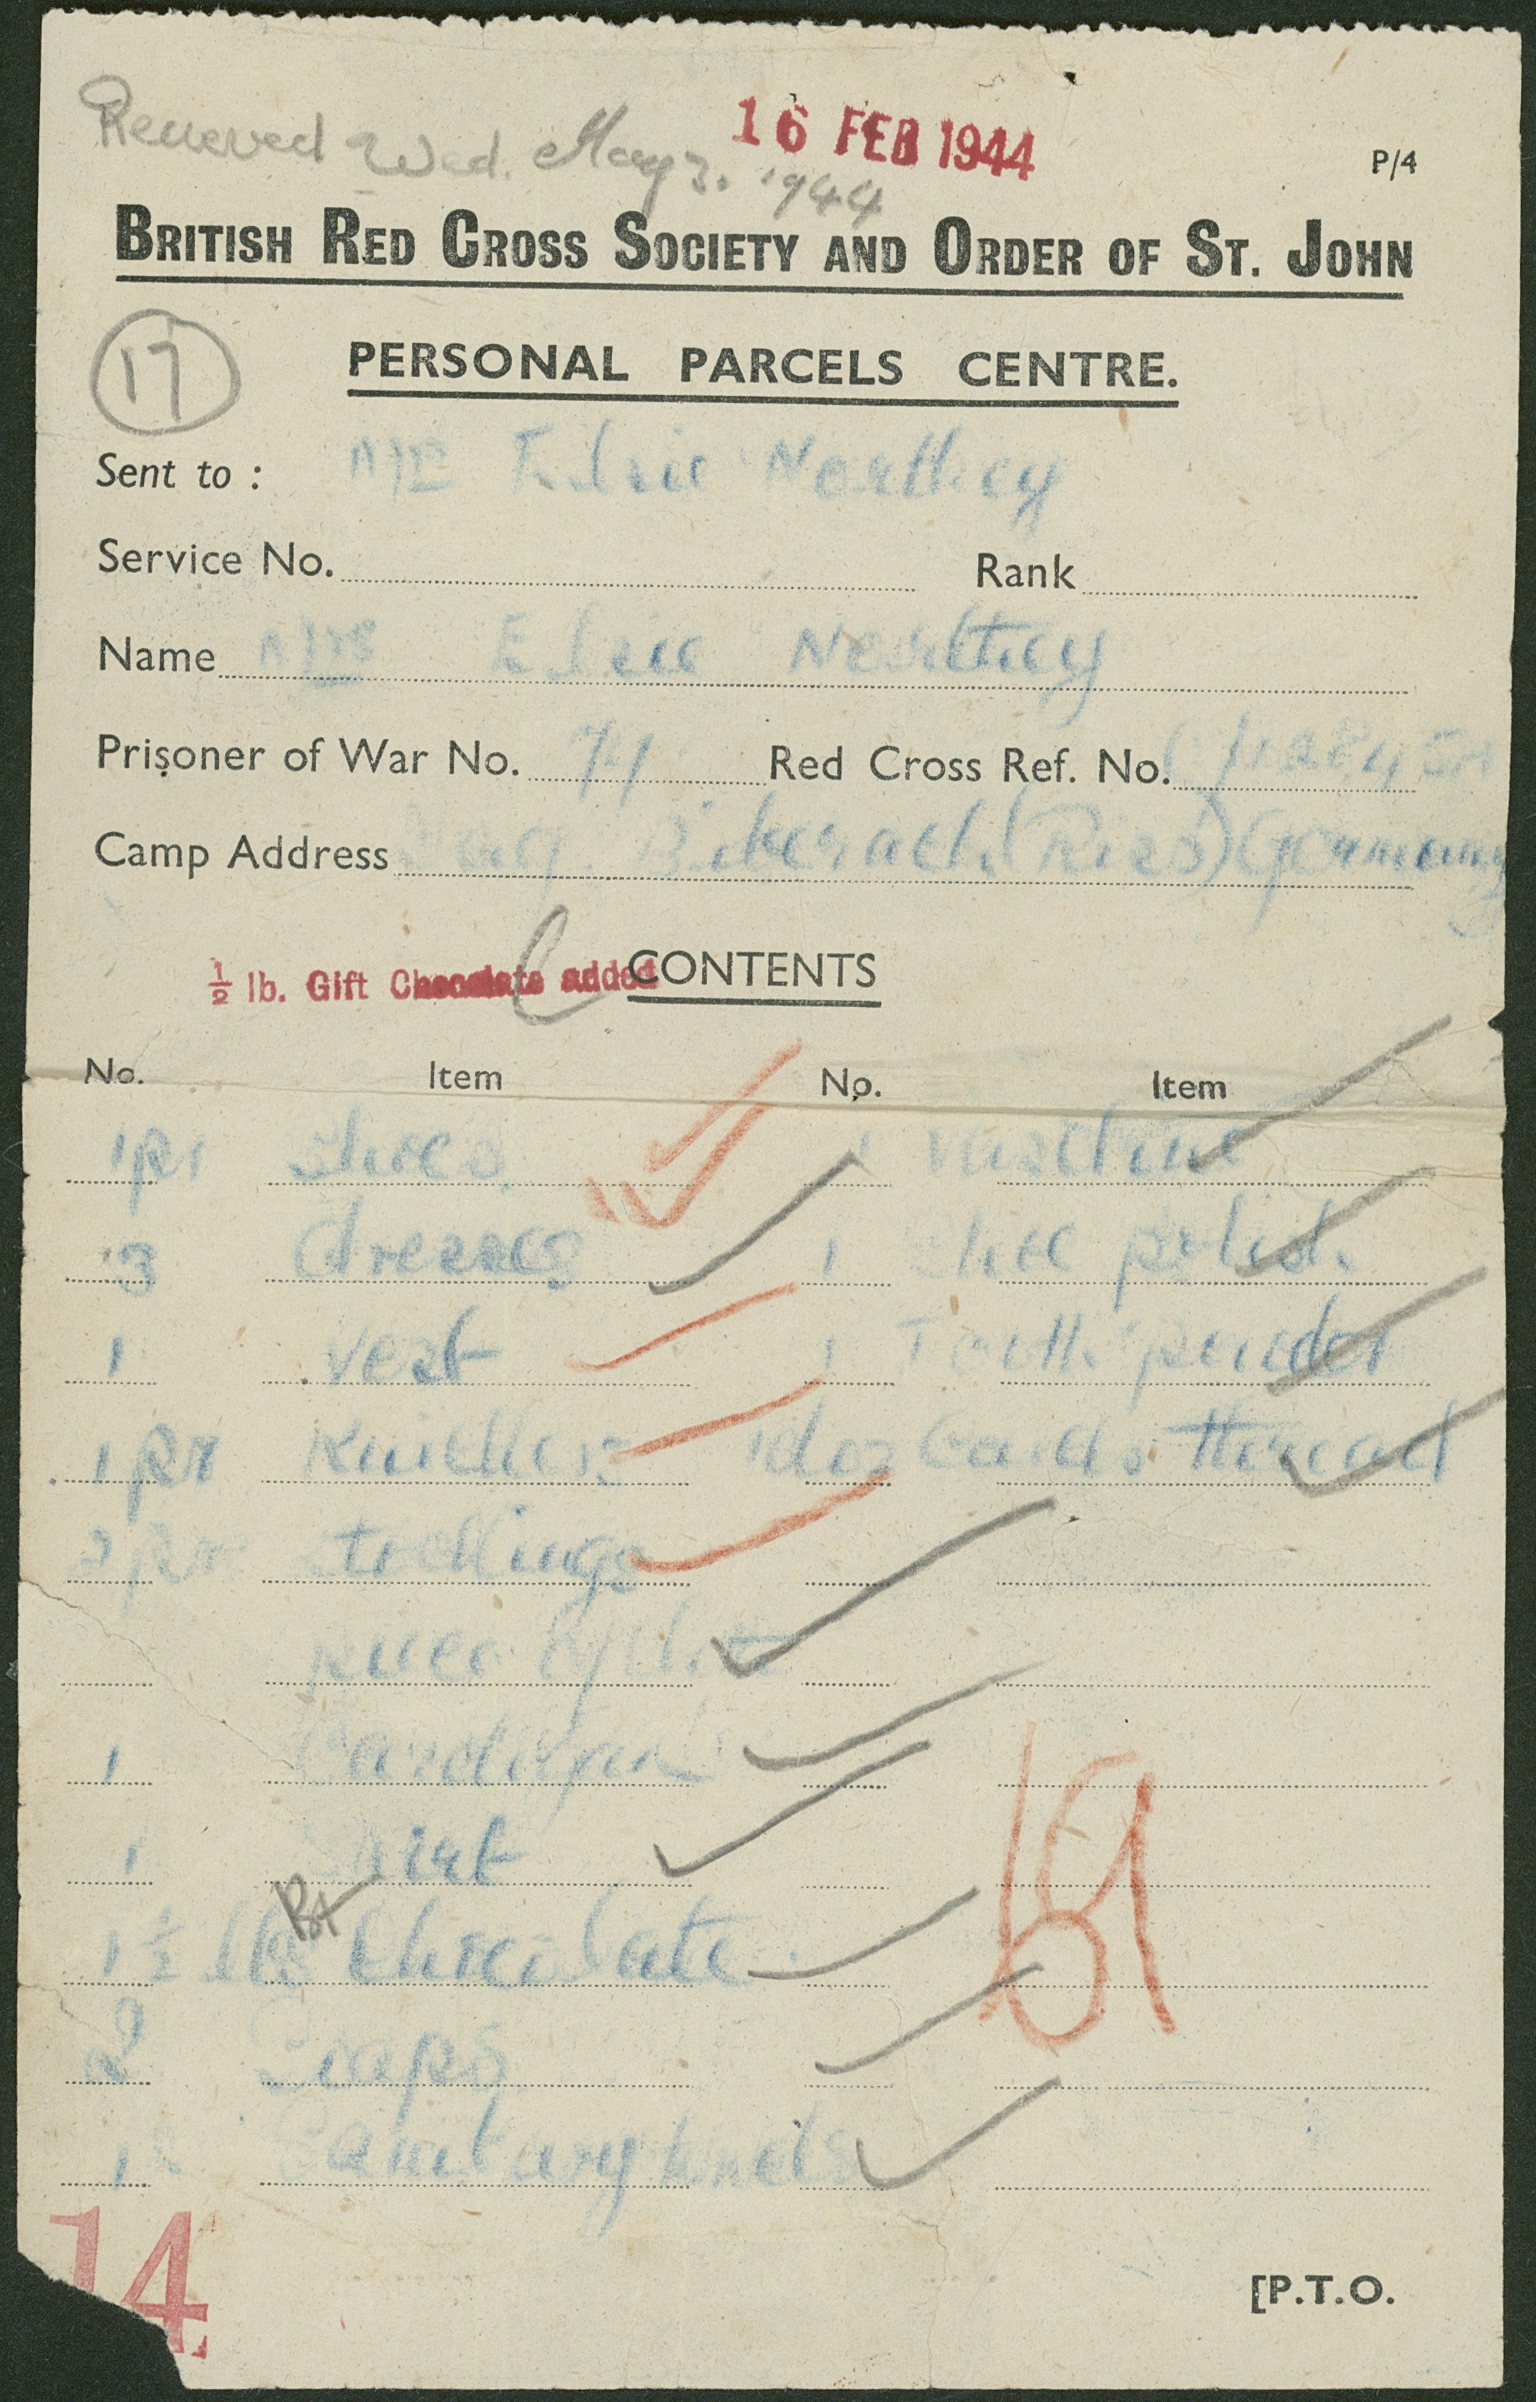 Received Wed. May 3. 1944
16 FEB 1944
P/4
BRITISH RED CROSS SOCIETY AND ORDER OF ST. JOHN
17
PERSONAL PARCELS CENTRE.
Sent to : Mrs Elsie Northey
Service No. Rank
Name Mrs Elsie Northey
Prisoner of War No. Red Cross Ref. No.
Camp Address Biberach (Riss) Germany
½ lb. Gift Chocolate added
CONTENTS
No. Item No. Item
1 pr shoes 1 vaseline
3 dresses 1 shoe polish
1 vest 1 Tooth powder
1 pr knickers 1 doz Cards thread
2 pr stockings
1 Cardigan
1 skirt
1½ lbs Chocolate
2 Soaps
Sanitary towels
14
[P.T.O.